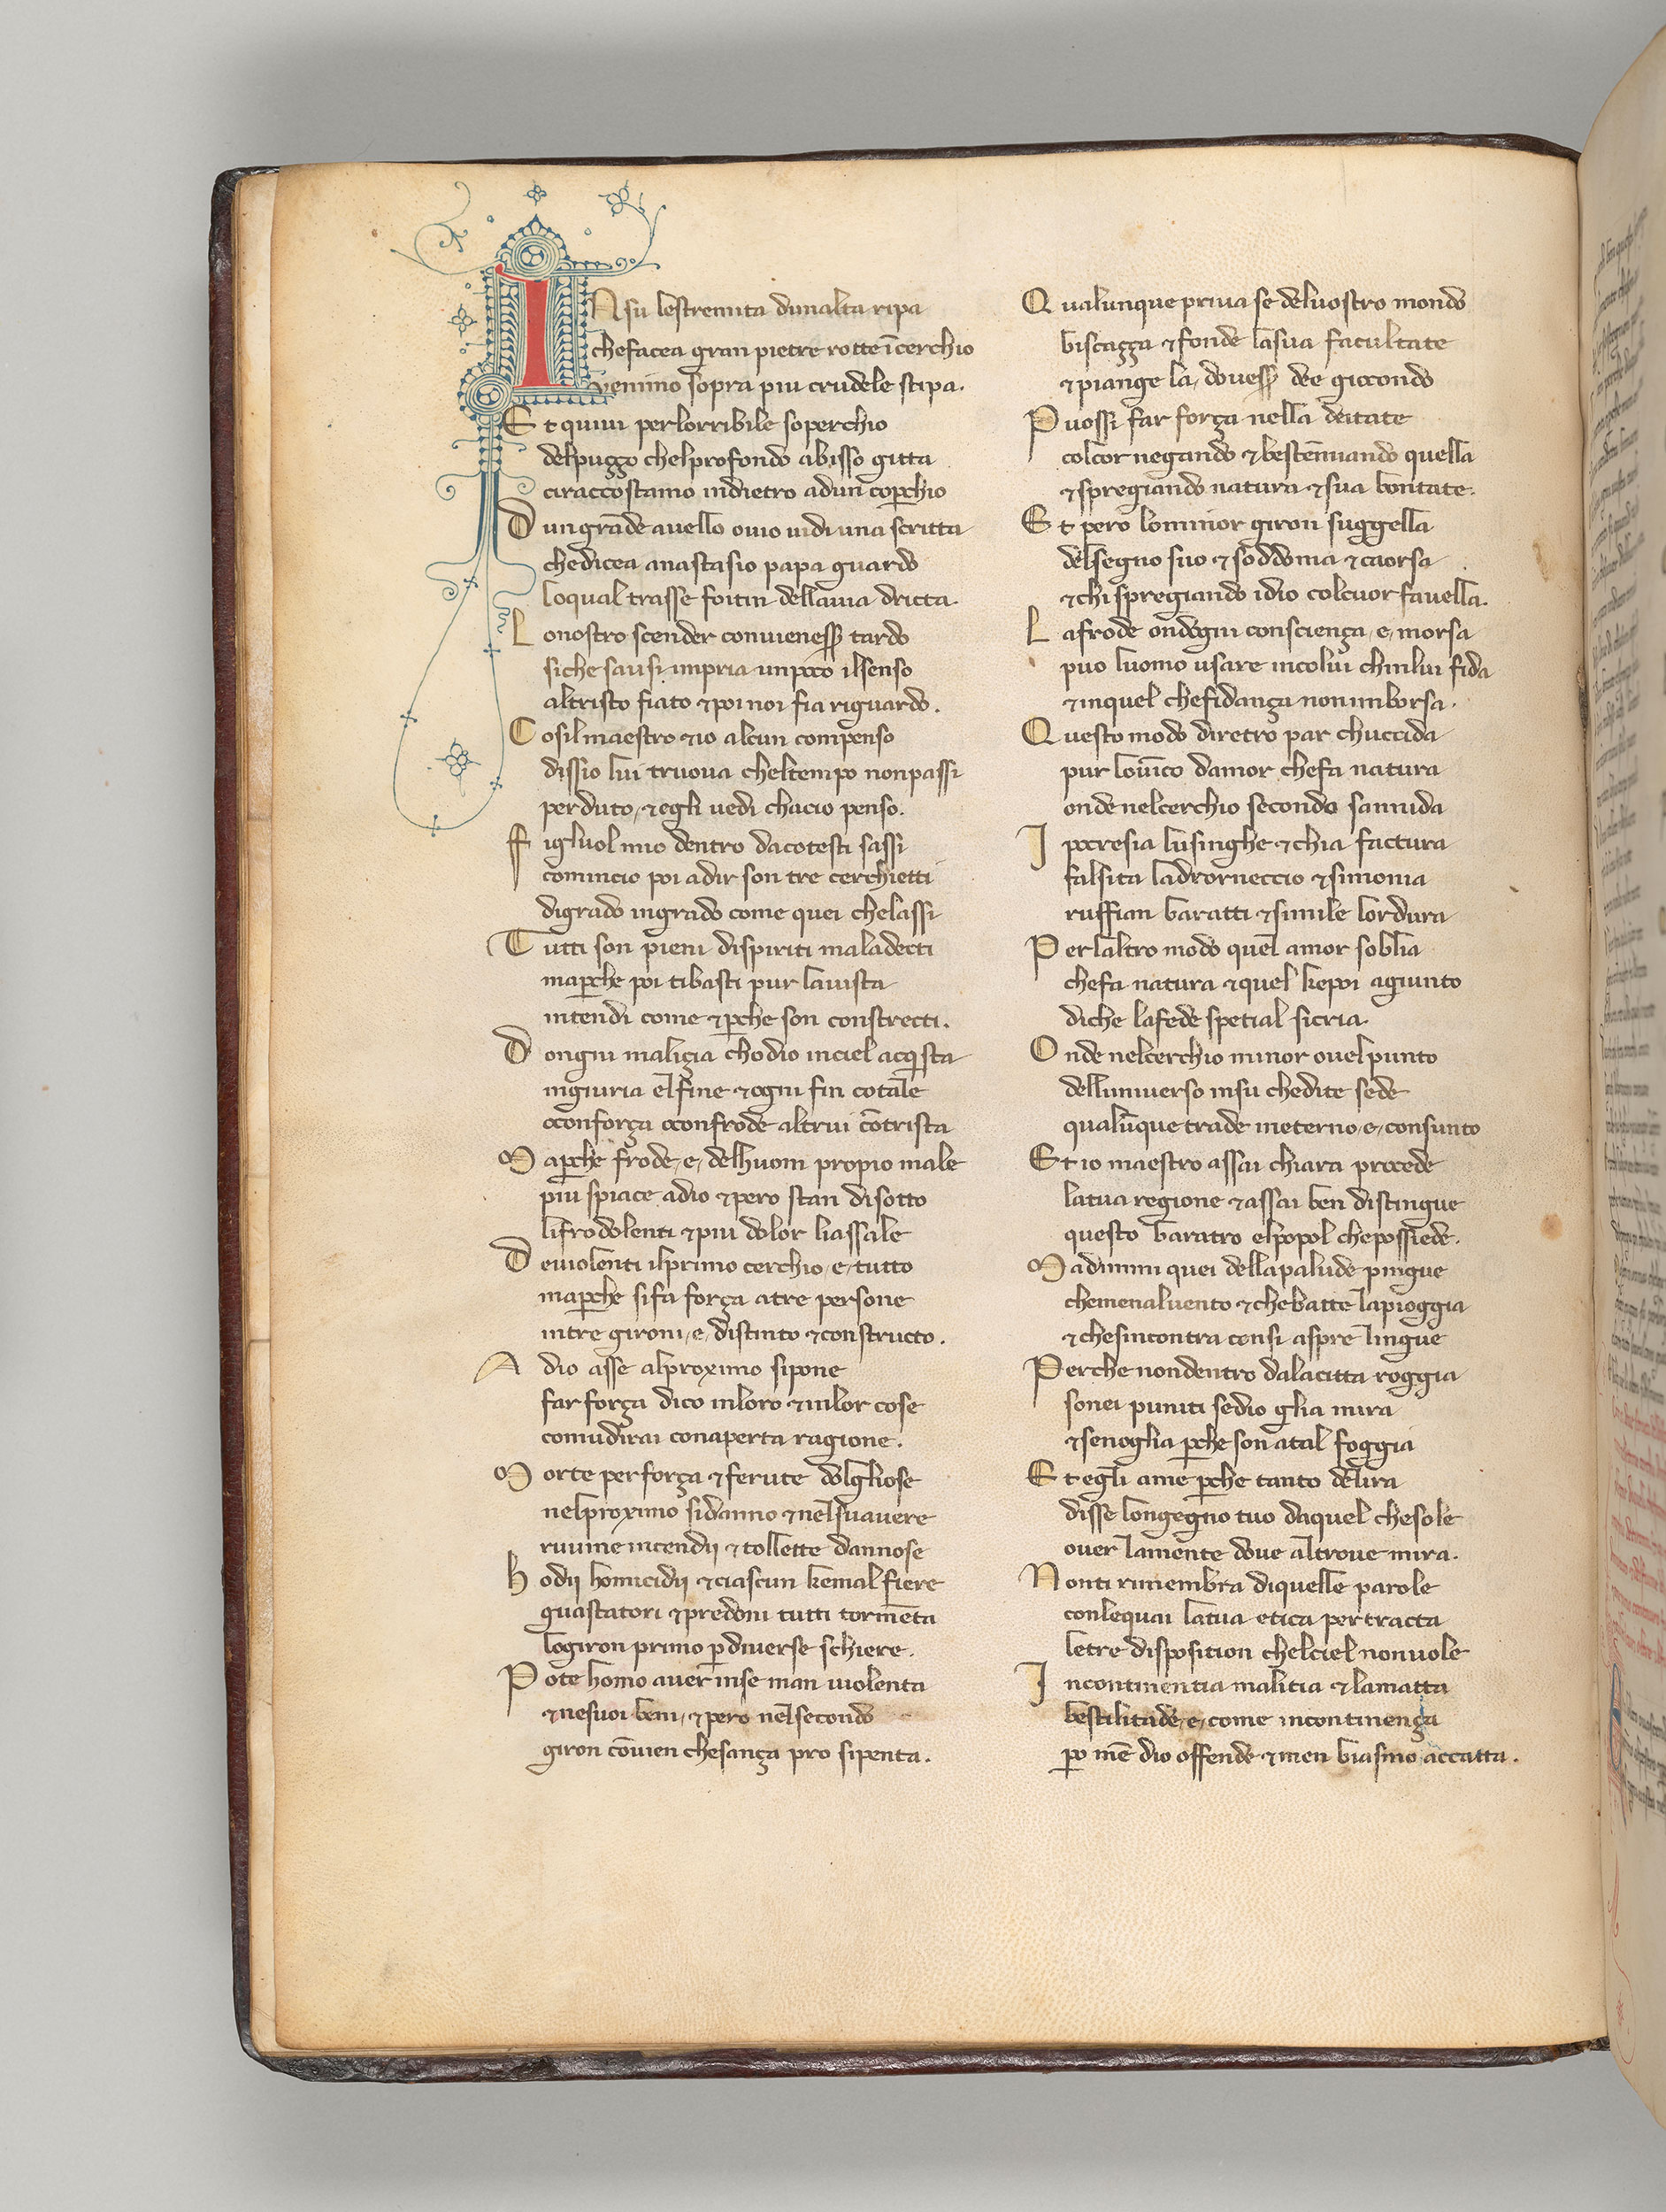 INsu lestremita dunalta ripa
chefacea gran pietre rotte īcerchio
venimo sopra piu crudele stipa.
Et quiui perlorribile soperchio
delpuzzo chelprofondo abisso gitta
ciraccostamo indietro adun coꝑchio
Dungrāde auello ouio uidi una scritta
chedicea anastasio papa guardo
loqual trasse foitin dellauia dricta.
Lonostro scender conuienesser tardo
siche sausi impria unpoco ilsenso
altristo fiato ⁊poi noi fia riguardo.
Cosilmaestro ⁊io alcun compenso
dissio lui truoua cheltempo nonpassi
perduto, ⁊egli uedi chacio penso.
Figluol mio dentro dacotesti sassi
comincio poi adir son tre cerchietti
digrado ingrado come quei chelassi
Tutti son pieni dispiriti maladecti
maꝑche poi tibasti pur lauista
intendi come ⁊ꝑche son constrecti.
Dongni maliçia chodio inciel acq̄sta
ingiuria elfine ⁊ogni fin cotale
oconforça oconfrode altrui cōtrista
Maꝑche frode, e, delhuom propio male
piu spiace adio ⁊pero stan disotto
lifrodolenti ⁊piu dolor liassale
Deuiolenti ilprimo cerchio, e, tutto
maꝑche sifa força atre persone
intre gironi, e, distinto ⁊constructo.
Adio asse alproximo sipone
far força dico inloro ⁊inlor cose
comudirai conaperta ragione.
Morte perforça ⁊ferute dolgliose
nelproximo sidanno ⁊nelsuauere
ruuine incendij ⁊tollette dannose
Hodij homicidij ⁊ciascun kemal fiere
guastatori ⁊predoni tutti tormēta
logiron primo ꝑdiuerse schiere.
Pote homo auer inse man uiolenta
⁊nesuoi beni, ⁊pero nelsecondo
giron cōuien chesança pro sipenta.
Qualunque priua se deluostro mondo
biscazza ⁊fonde lasua facultate
⁊piange la, douesser dee giocondo
Puossi far força nella deitate
colcor negando ⁊bestēmiando quella
⁊spregiando natura ⁊sua bontate.
Et pero lominor giron suggella
delsegno suo ⁊soddoma ⁊caorsa
⁊chi spregiando idio colcuor fauella.
Lafrode ondogni consciença, e, morsa
puo luomo usare incolui chinlui fida
⁊inquel chefidança non imborsa.
Questo modo diretro par chuccida
pur louīco damor chefa natura
onde nelcerchio secondo sannida
Ipocresia lusinghe ⁊chia factura
falsita ladrorneccio ⁊simonia
ruffian baratti ⁊simile lordura
Perlaltro modo quel amor soblia
chefa natura ⁊quel kepoi agiunto
diche lafede spetial sicria.
Onde nelcerchio minor ouel punto
delluniuerso insu chedite sede
qualūque trade ineterno, e, consunto
Et io maestro assai chiara procede
latua regione ⁊assai ben distingue
questo baratro elpopol chepossiede.
Madimmi quei dellapalude pingue
chemenaluento ⁊chebatte lapioggia
⁊chesincontra consi aspre lingue
Perche nondentro dalacitta roggia
sonei puniti sedio glia inira
⁊senoglia ꝑche son atal foggia
Et egli ame ꝑche tanto delira
disse longegno tuo daquel chesole
ouer lamente doue altroue mira.
Nonti rimembra diquelle parole
conlequai latua etica pertracta
letre disposition chelciel nonuole
Incontinentia malitia ⁊lamatta
bestialitade, e, come incontinença
ꝑo mē dio offende ⁊men biasmo accatta.